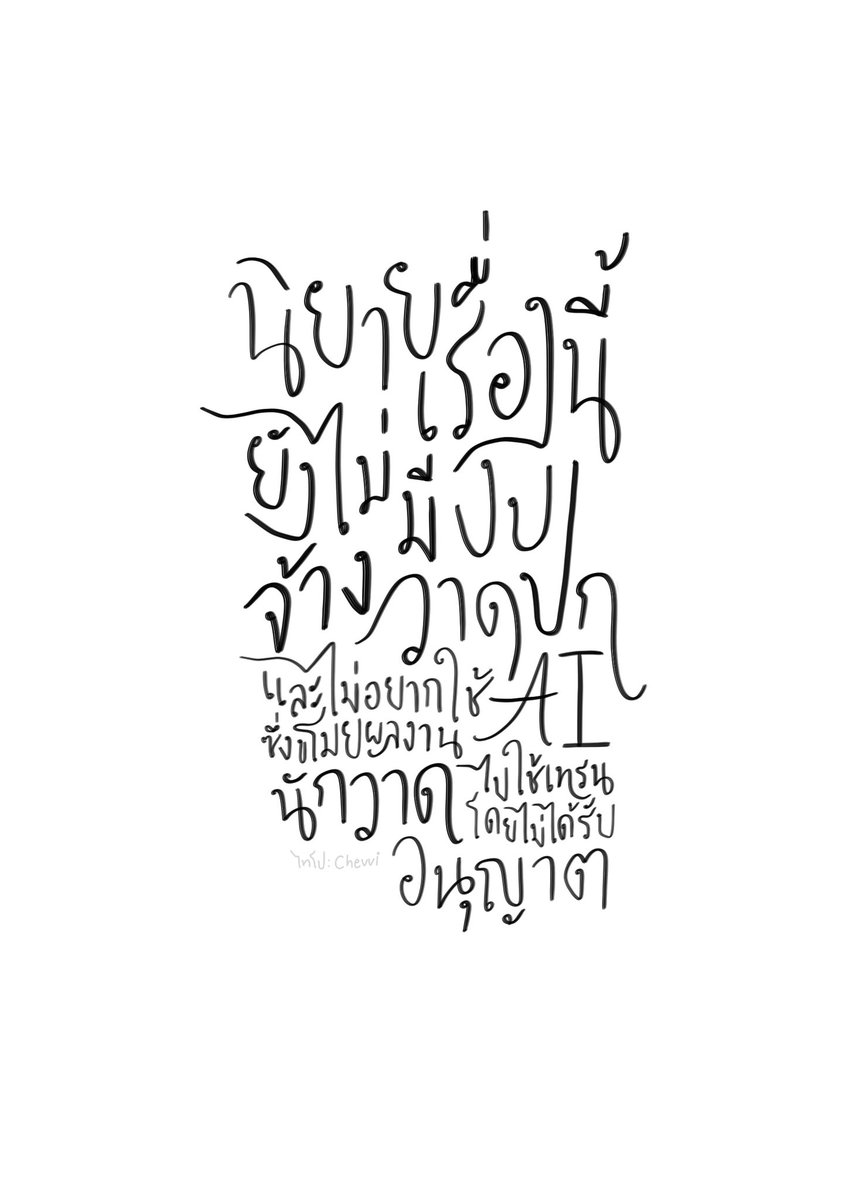 นิยายเรื่องนี้
ยังไม่มีงบ
จ้างวาดปก
และไม่อยากใช้ AI
ซึ่งขโมยผลงาน
นักวาด ไปใช้เทรน
โดยไม่ได้รับ
อนุญาต
ไทโป: Chewi